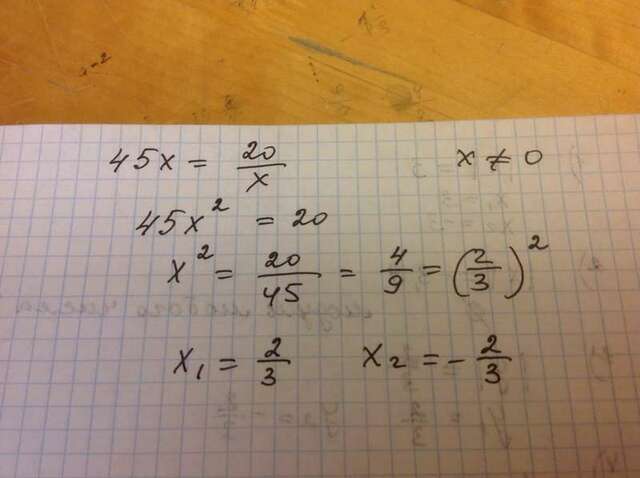 45x = 20/x x ≠ 0
45x² = 20
x² = 20/45 = 4/9 = (2/3)²
x₁ = 2/3 x₂ = -2/3